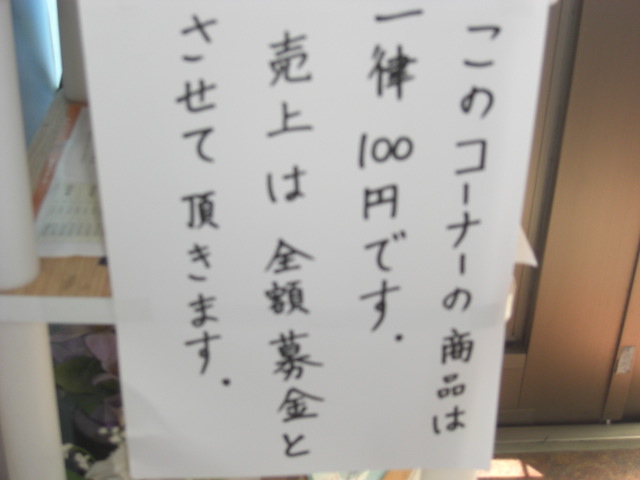 このコーナーの商品は
一律100円です.
売上は全額募金と
させて頂きます.